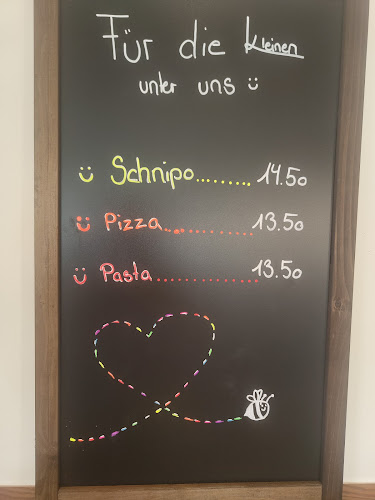 Für die kleinen
unter uns
Schnipo......... 14.50
Pizza.............. 13.50
Pasta.............. 13.50